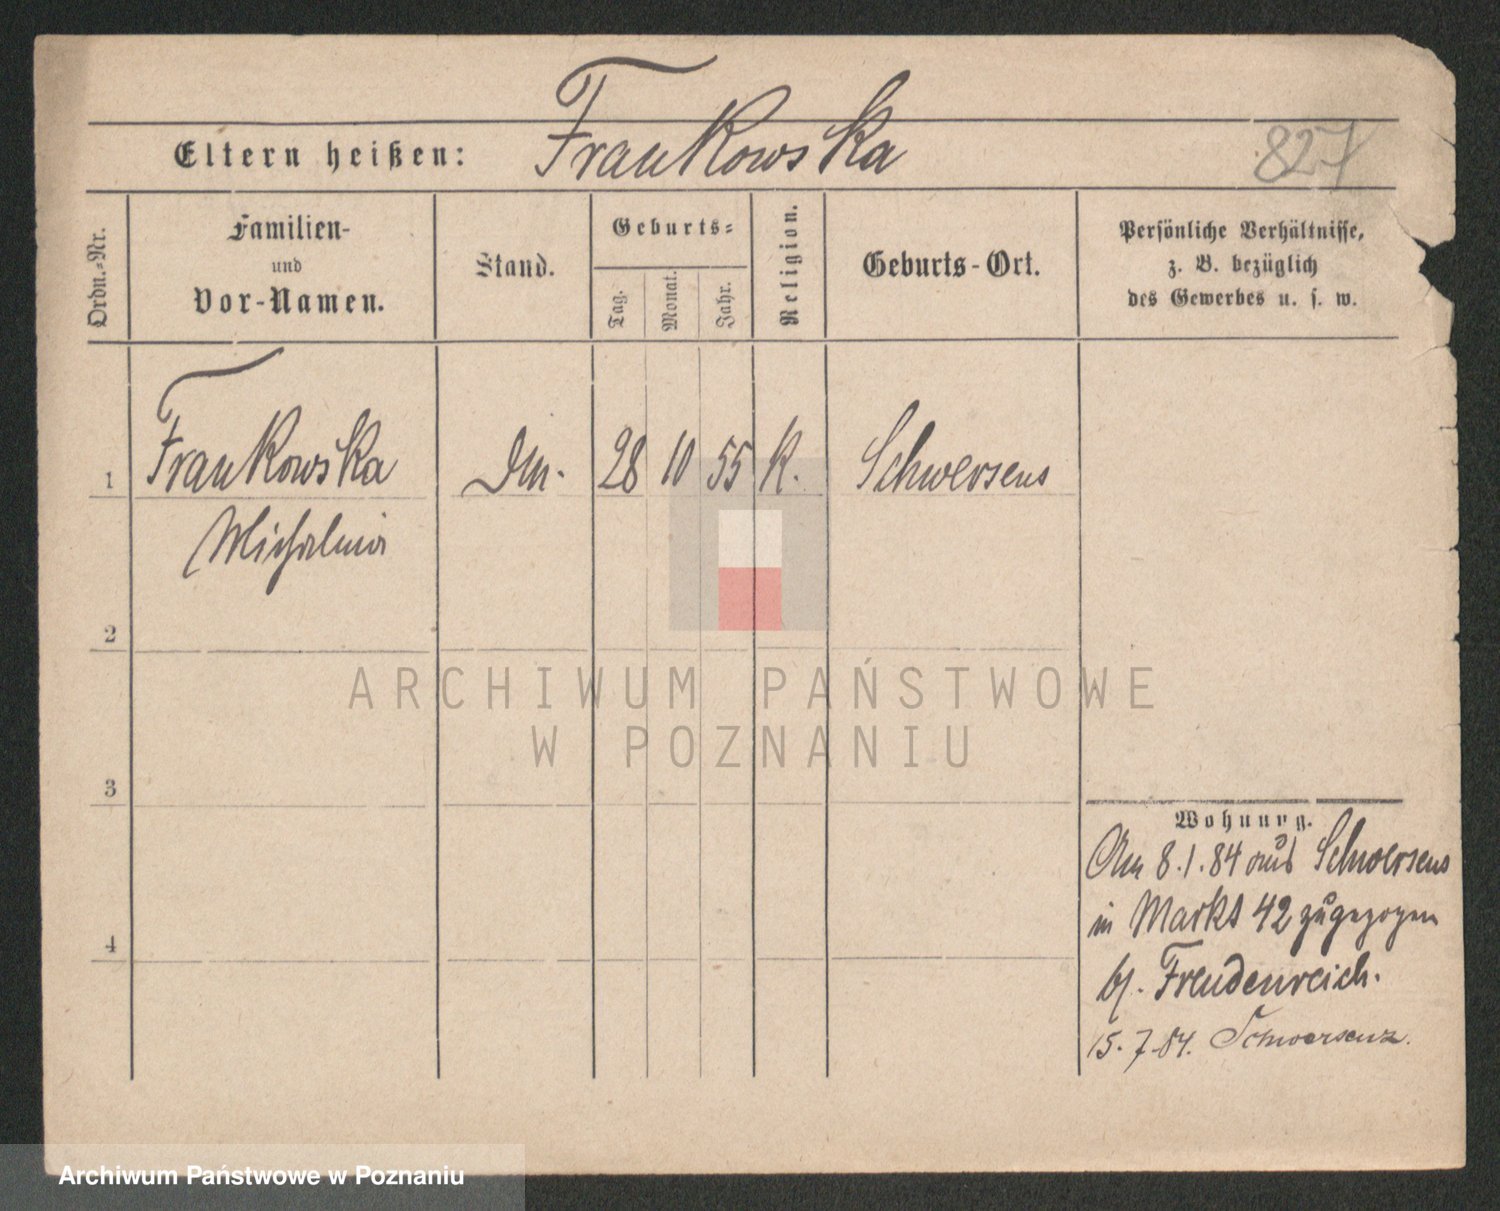 Frankowska
Eltern heißen:
827
Ordn.-Nr.
Familien-
und
Vor-Namen.
Stand.
Geburts-
Tag.
Monat.
Jahr.
Religion.
Geburts-Ort.
Persönliche Verhältnisse,
z. B. bezüglich
des Gewerbes u. s. w.
1 Frankowska 28 10 55 K. Schwersens
Michalina
2
3
4
Wohnung.
Am 8.1.84 aus Schwersens
in Markt 42 zugezogen
b/. Freudenreich.
15.7.84. Schwersenz.
ARCHIWUM PAŃSTWOWE
W POZNANIU
Archiwum Państwowe w Poznaniu